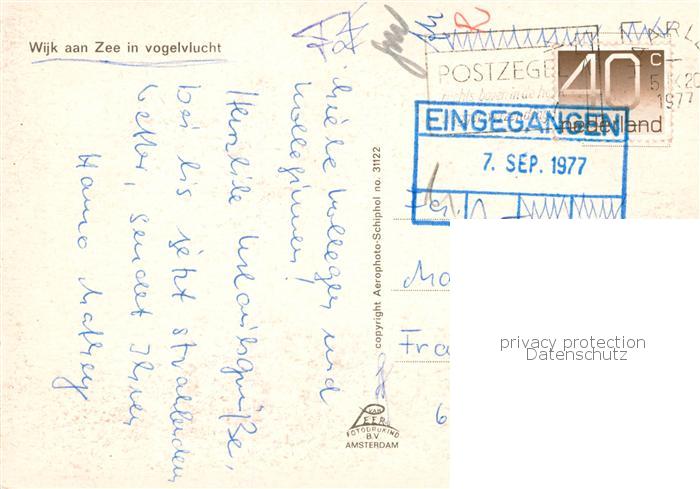 Wijk aan Zee in vogelvlucht
Liebe Kollegen und
Kolleginnen!
Herzliche Urlaubsgrüße,
bei bis jetzt strahlendem
Wetter, sendet Ihnen
Hanno
copyright Aerophoto-Schiphol no. 31122
VAN
LEER
FOTODRUKIND
B.V
AMSTERDAM
POSTZEGE
40 c
nederland
5
1977
EINGEGANGEN
7. SEP. 1977
Fra
6
privacy protection
Datenschutz